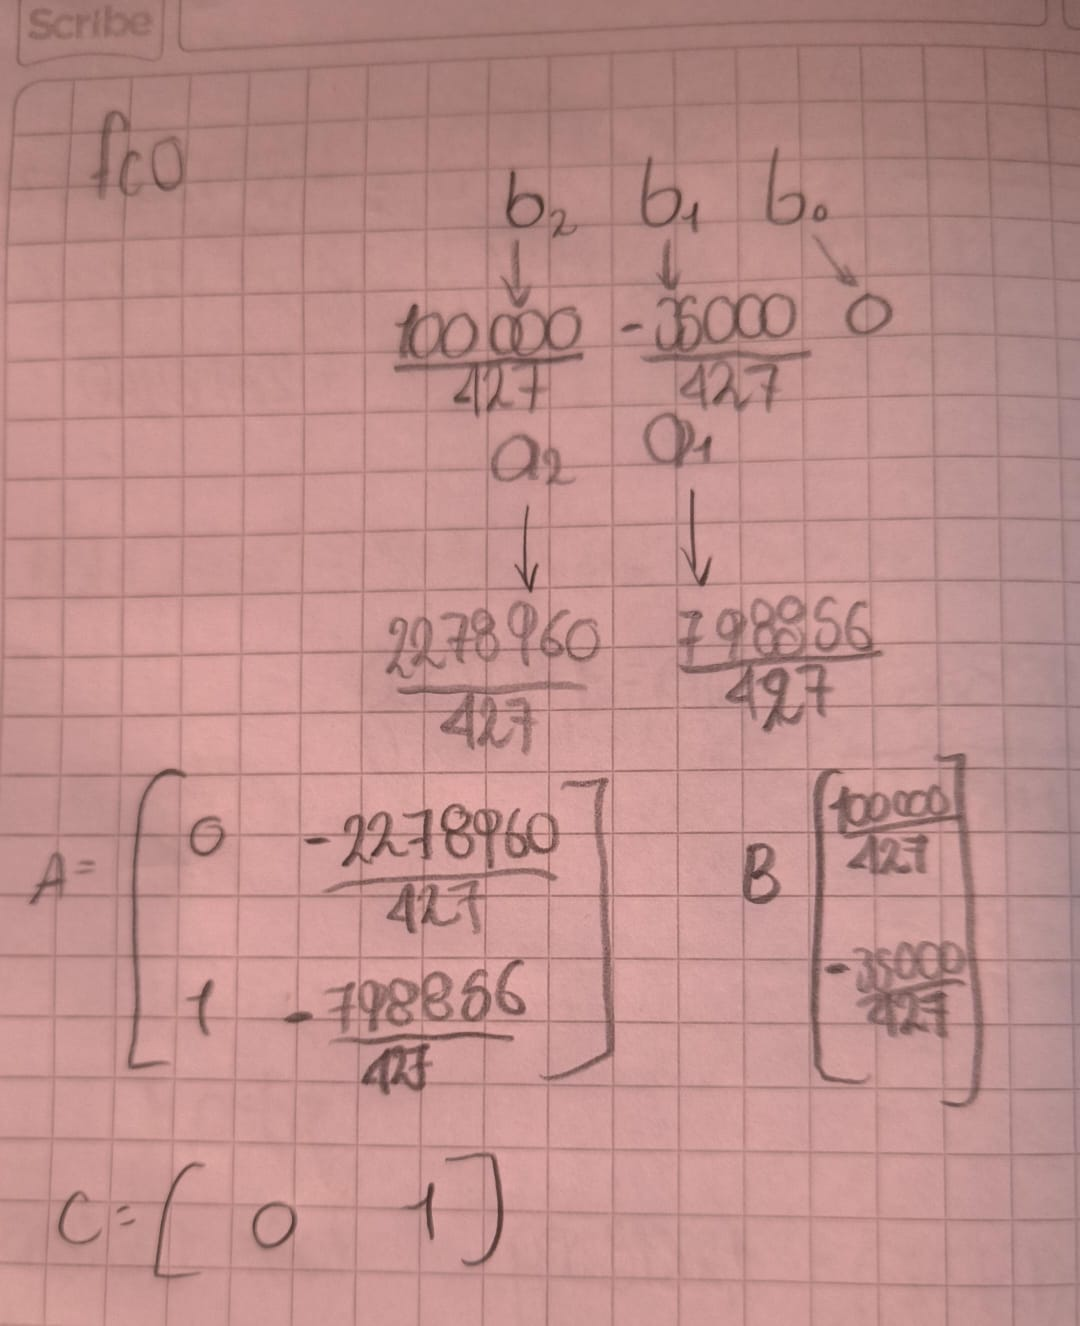 Scribe
fco
b₂ b₁ b₀
↓ ↓ ↘
100000/427 -35000/427 0
a₂ a₁
↓ ↓
2278960/427 798856/427
A= [ 0 -2278960/427 B [ 100000/427
1 -798856/427 ] -35000/427 ]
C= [ 0 1 ]